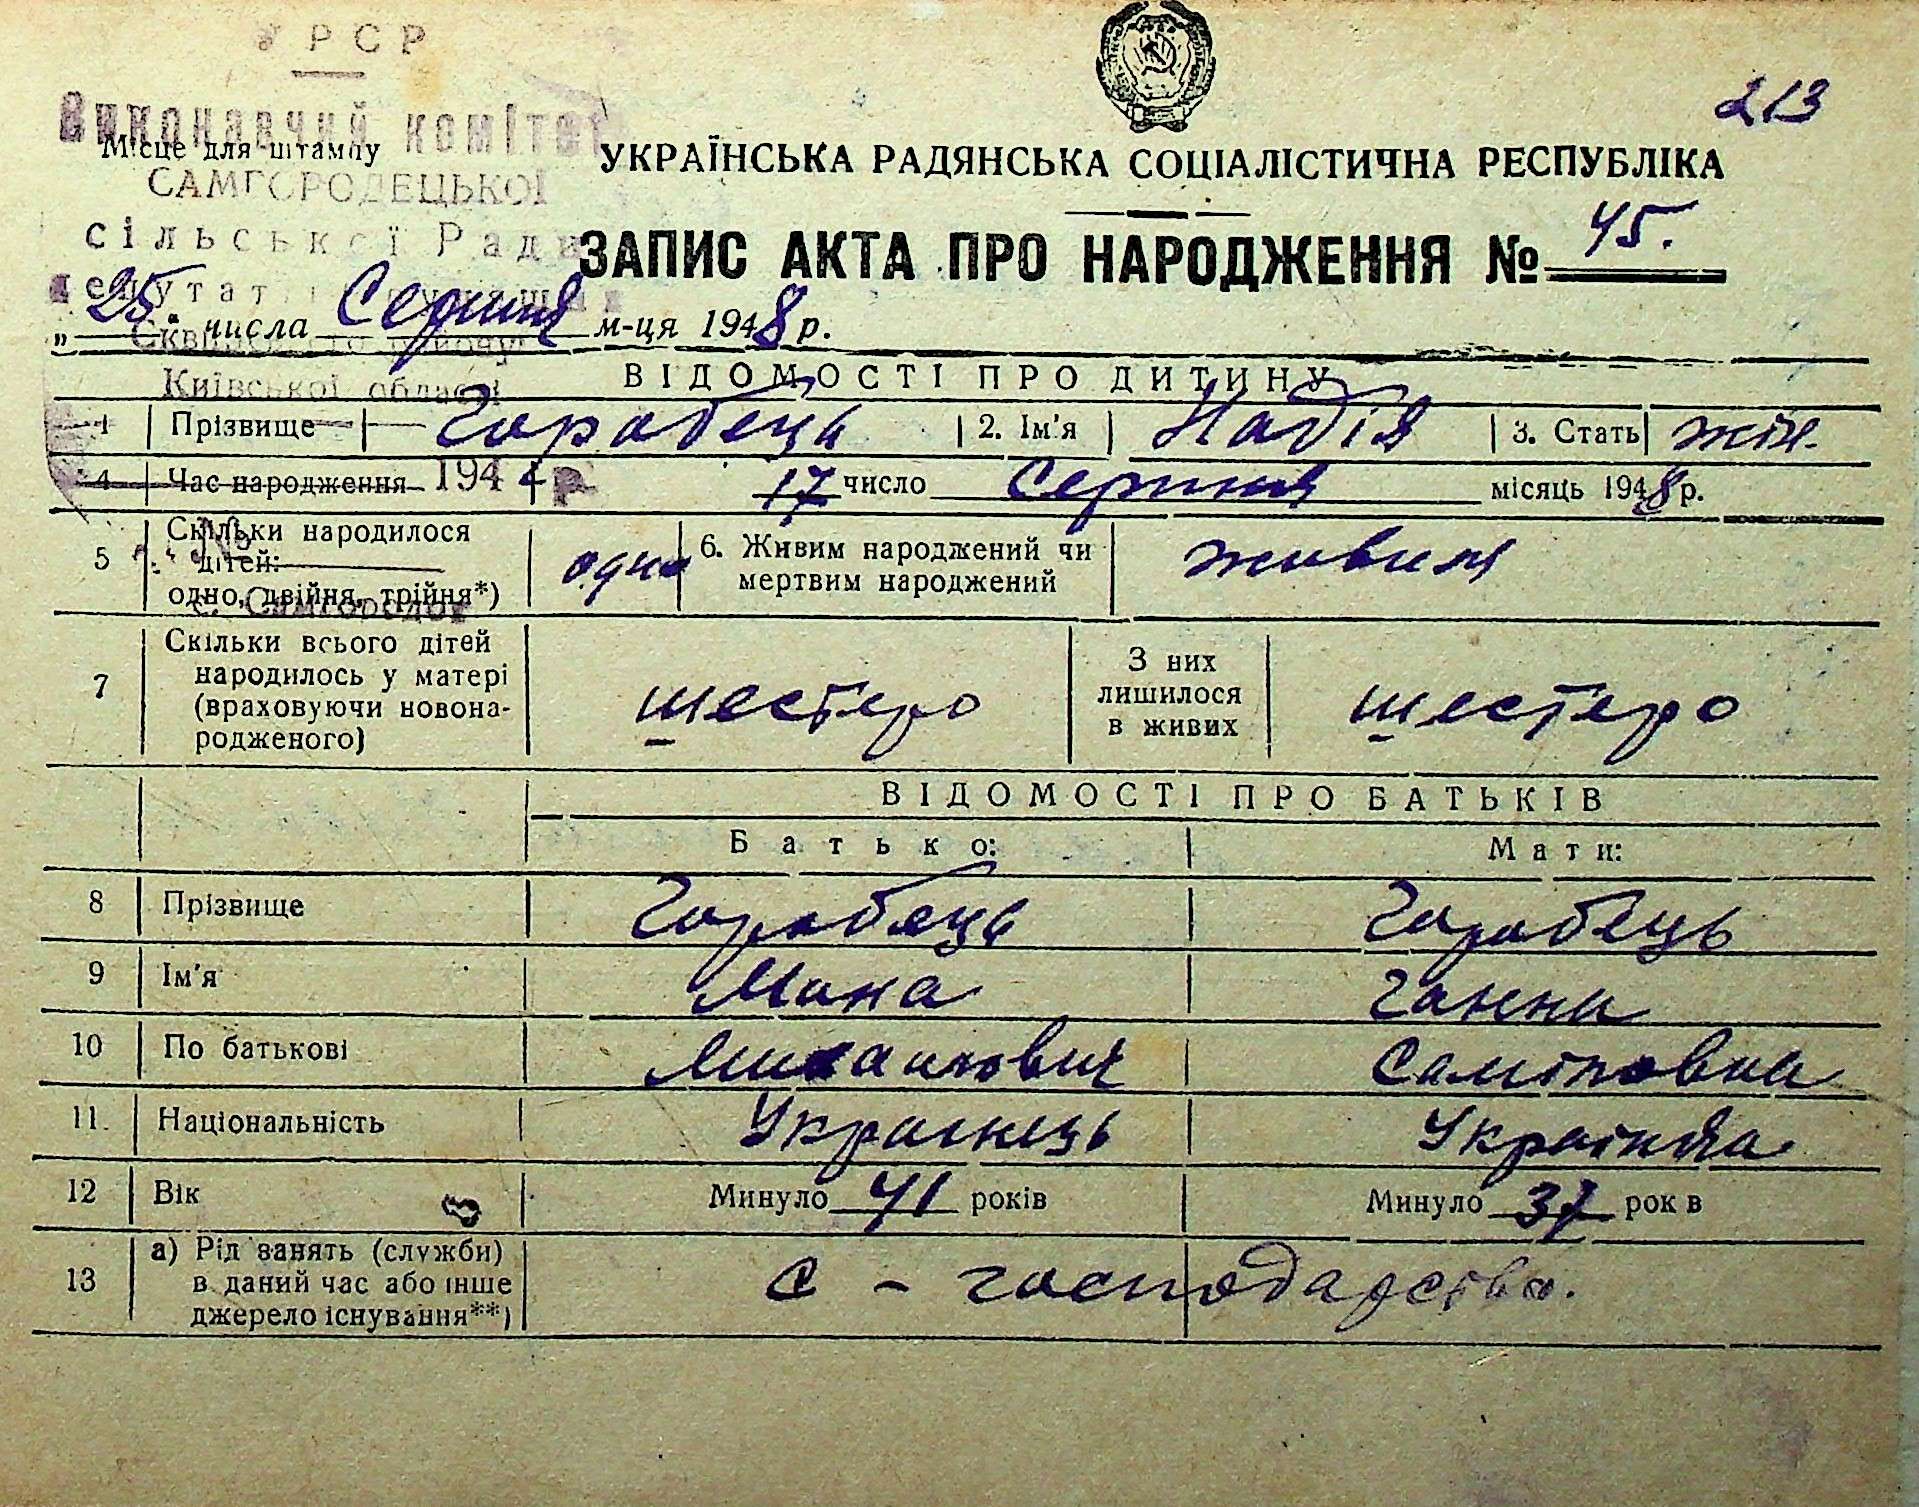 У Р С Р
213
Виконавчий комітет
Місце для штампу
УКРАЇНСЬКА РАДЯНСЬКА СОЦІАЛІСТИЧНА РЕСПУБЛІКА
САМГОРОДЕЦЬКОЇ
сільської Ради
ЗАПИС АКТА ПРО НАРОДЖЕННЯ № 45.
„ 25 " числа Серпня м-ця 1948 р.
Сквирського району
Київської області
ВІДОМОСТІ ПРО ДИТИНУ
1 Прізвище Горобець 2. Ім'я Надія 3. Стать жін.
4 Час народження 17 число Серпня місяць 1948 р.
194 р
5 Скільки народилося дітей: одно, двійня, трійня*) одна 6. Живим народжений чи мертвим народжений живим
№
с. Самгородок
7 Скільки всього дітей народилось у матері (враховуючи новона-родженого) шестеро З них лишилося в живих шестеро
ВІДОМОСТІ ПРО БАТЬКІВ
Батько: Мати:
8 Прізвище Горобець Горобець
9 Ім'я Мина Ганна
10 По батькові Михайлович
11. Національність Українець Українка
12 Вік Минуло 41 років Минуло 37 рок в
13 а) Рід занять (служби) в даний час або інше джерело існування**) с - господарство.